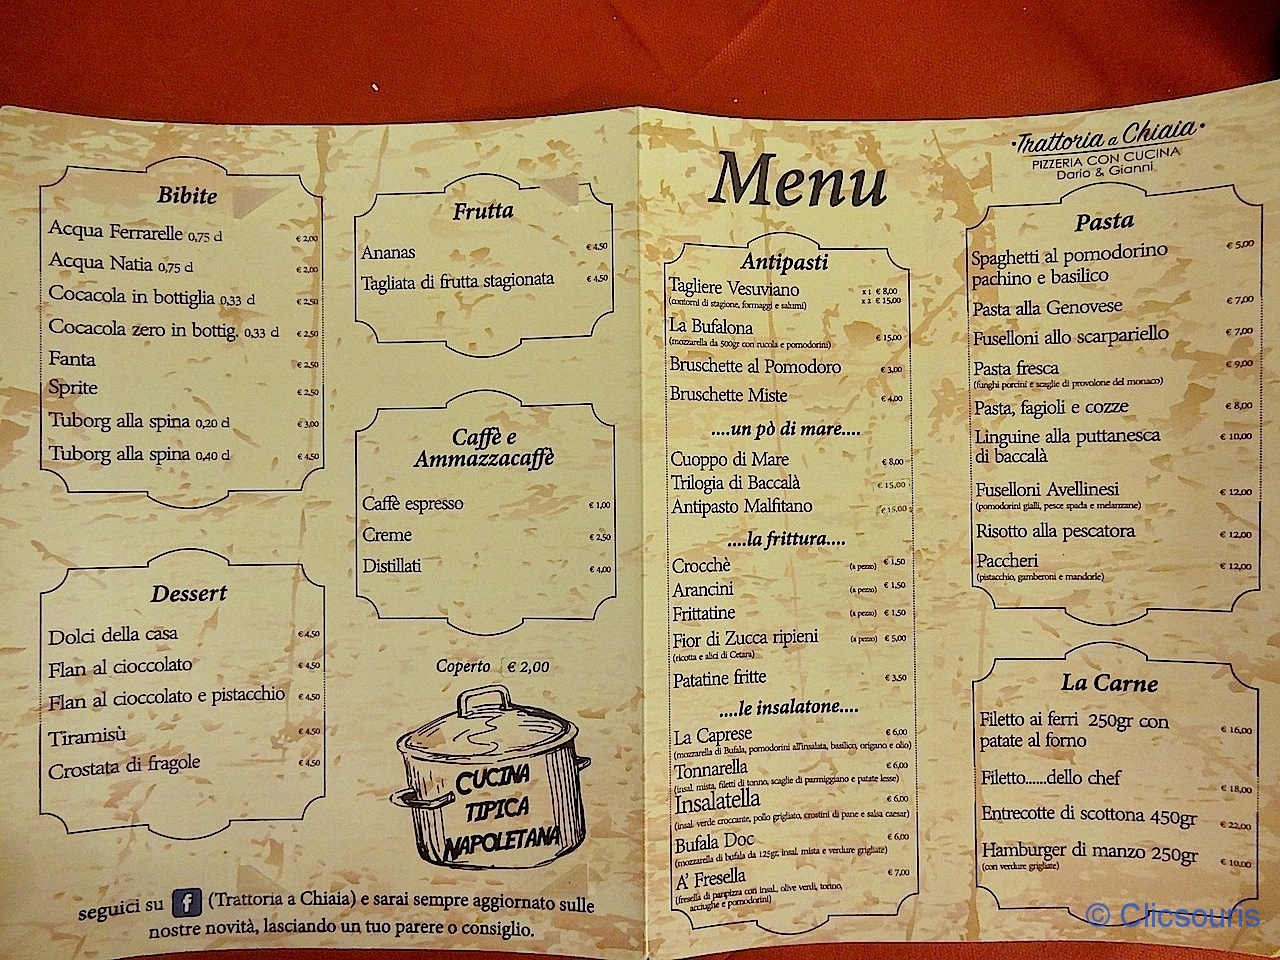 Bibite
Acqua Ferrarelle 0,75 cl € 2,00
Acqua Natia 0,75 cl € 2,00
Cocacola in bottiglia 0,33 cl € 2,50
Cocacola zero in bottig. 0,33 cl € 2,50
Fanta € 2,50
Sprite € 2,50
Tuborg alla spina 0,20 cl € 3,00
Tuborg alla spina 0,40 cl € 4,50
Dessert
Dolci della casa € 4,50
Flan al cioccolato € 4,50
Flan al cioccolato e pistacchio € 4,50
Tiramisù € 4,50
Crostata di fragole € 4,50
Frutta
Ananas € 4,50
Tagliata di frutta stagionata € 4,50
Caffè e
Ammazzacaffè
Caffè espresso € 1,00
Creme € 2,50
Distillati € 4,00
Coperto € 2,00
CUCINA
TIPICA
NAPOLETANA
seguici su f (Trattoria a Chiaia) e sarai sempre aggiornato sulle
nostre novità, lasciando un tuo parere o consiglio.
Menu
·Trattoria a Chiaia·
PIZZERIA CON CUCINA
Dario & Gianni
Antipasti
Tagliere Vesuviano x 1 € 8,00
(contorni di stagione, formaggi e salumi) x 2 € 15,00
La Bufalona € 15,00
(mozzarella da 500gr con rucola e pomodorini)
Bruschette al Pomodoro € 3,00
Bruschette Miste € 4,00
....un pò di mare....
Cuoppo di Mare € 8,00
Trilogia di Baccalà € 15,00
Antipasto Malfitano € 15,00
....la frittura....
Crocchè (a pezzo) € 1,50
Arancini (a pezzo) € 1,50
Frittatine (a pezzo) € 1,50
Fior di Zucca ripieni (a pezzo) € 5,00
(ricotta e alici di Cetara)
Patatine fritte € 3,50
....le insalatone....
La Caprese € 6,00
(mozzarella di Bufala, pomodorini all'insalata, basilico, origano e olio)
Tonnarella € 6,00
(insal. mista, filetti di tonno, scaglie di parmiggiano e patate lesse)
Insalatella € 6,00
(insal. verde croccante, pollo grigliato, crostini di pane e salsa caesar)
Bufala Doc € 6,00
(mozzarella di bufala da 125gr, insal. mista e verdure grigliate)
A' Fresella € 7,00
(fresella di panpizza con insal., olive verdi, torino,
acciughe e pomodorini)
Pasta
Spaghetti al pomodorino € 5,00
pachino e basilico
Pasta alla Genovese € 7,00
Fuselloni allo scarpariello € 7,00
Pasta fresca € 9,00
(funghi porcini e scaglie di provolone del monaco)
Pasta, fagioli e cozze € 8,00
Linguine alla puttanesca € 10,00
di baccalà
Fuselloni Avellinesi € 12,00
(pomodorini gialli, pesce spada e melanzane)
Risotto alla pescatora € 12,00
Paccheri € 12,00
(pistacchio, gamberoni e mandorle)
La Carne
Filetto ai ferri 250gr con € 16,00
patate al forno
Filetto......dello chef € 18,00
Entrecotte di scottona 450gr € 22,00
Hamburger di manzo 250gr € 10,00
(con verdure grigliate)
© Clicsouris